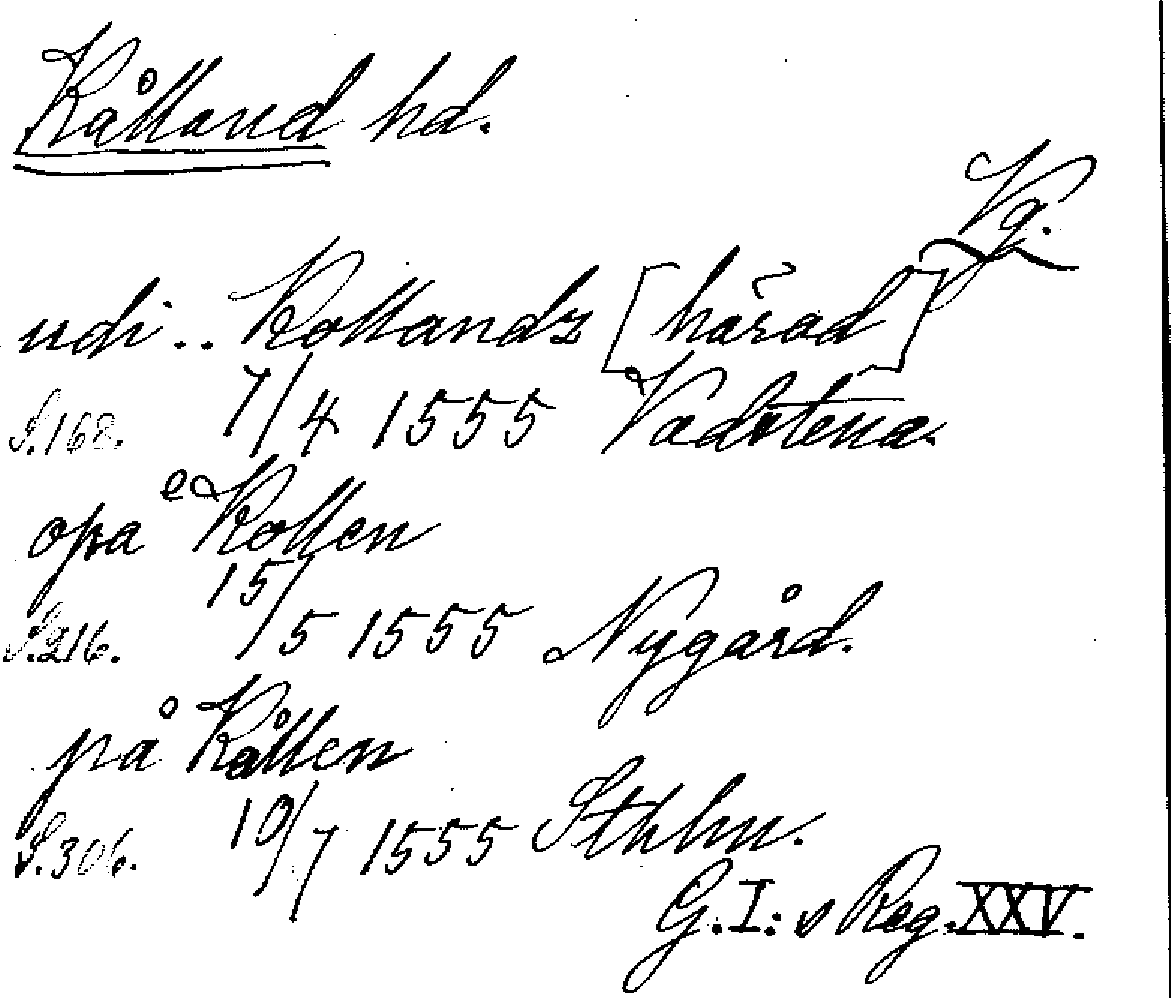 Kålland hd.
Vg.
udi .. Kollandz [härad]
S. 168. 7/4 1555 Vadstena.
opå Kollen
S. 216. 15/5 1555 Nygård.
på Kållen
S. 306. 10/7 1555 Sthlm.
G. I:s Reg. XXV.